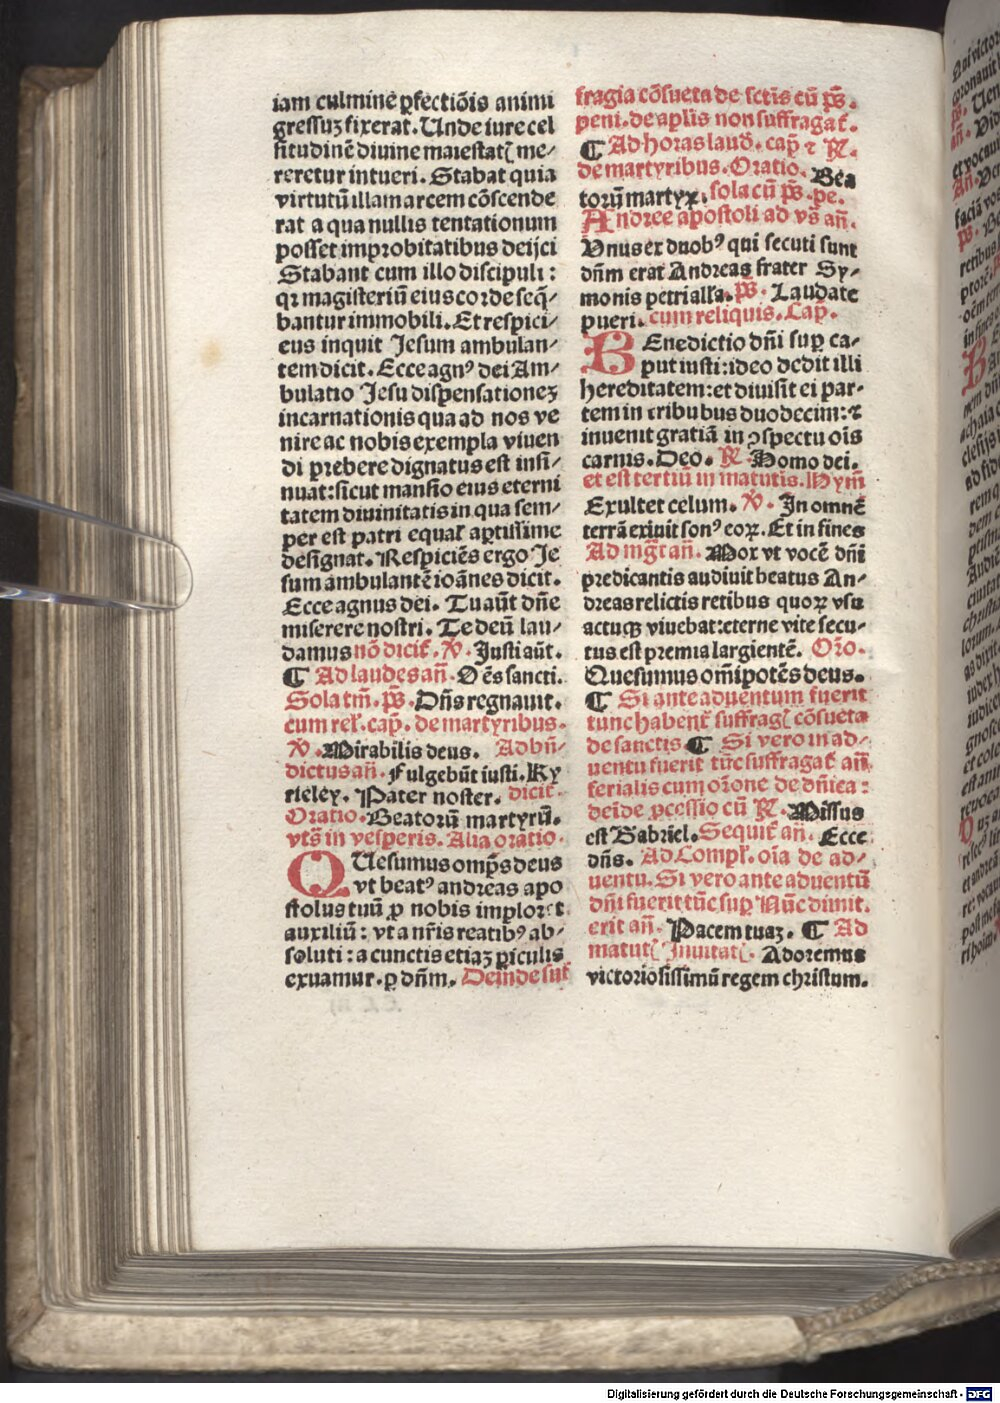 iam culminē ꝑfectiōis animi
gressuꝫ fixerat. Unde iure cel
situdinē divine maiestatꝭ me⸗
reretur intueri. Stabat quia
virtutū illam arcem cōscende
rat a qua nullis tentationum
posset improbitatibus deijci
Stabant cum illo discipuli :
qꝛ magisteriū eius corde seq̄⸗
bantur immobili. Et respici⸗
eus inquit Jesum ambulan⸗
tem dicit. Ecce agnꝰ dei Am⸗
bulatio Jesu dispensationeꝫ
incarnationis qua ad nos ve
nire ac nobis exempla viuen
di p̄bere dignatus est insi⸗
nuat: sicut mansio eius eterni
tatem diuinitatis in qua sem⸗
per est patri equal̓ aptissime
designat. Respiciēs ergo Je
sum ambulantē ioānes dicit.
Ecce agnus dei. Tu aūt dn̄e
miserere nostri. Te deū lau⸗
damus nō dicit̉. ℣. Justi aūt.
¶ Ad laudes an̄. Oēs sancti.
Sola tm̄. p̄s. Dn̄s regnauit.
cum rel̓. cap̄. de martyribus.
℣. Mirabilis deus. Ad bn̄⸗
dictus an̄. Fulgebūt iusti. Ky
rieley. Pater noster. dicit̉.
Oratio. Beatorū martyrū.
vts̄ in vesperis. Alia oratio.
QUesumus omp̄s deus
vt beatꝰ andreas apo
stolus tuū ꝓ nobis imploret
auxiliū : vt a nr̄is reatibꝰ ab⸗
soluti : a cunctis etiaꝫ ꝑiculis
exuamur. ꝑ dn̄m. Deinde suf
fragia cōsueta de sctīs cū p̄s.
peni. de apl̄is non suffragat̉.
¶ Ad horas laud̓. cap̄ ꝛ ℟.
de martyribus. Oratio. Bea
torū martyꝝ. sola cū p̄s. pe.
Andree apostoli ad vs̄ an̄.
Unus ex duobꝰ qui secuti sunt
dn̄m erat Andreas frater Sy⸗
monis petri all̓a. p̄s. Laudate
pueri. cum reliquis. Cap̄.
BEnedictio dn̄i suꝑ ca⸗
put iusti: ideo dedit illi
hereditatem: et diuisit ei par⸗
tem in tribubus duodecim: ꝛ
inuenit gratiā in ꝯspectu oīs
carnis. Deo. ℟. Homo dei.
et est tertiū in matutīs. Hym̄
Exultet celum. ℣. In omnē
terrā exiuit sonꝰ eoꝝ. Et in fines
Ad mgt̄ an̄. Mox vt vocē dn̄i
predicantis audiuit beatus An⸗
dreas relictis retibus quoꝝ vsu
actuqꝫ viuebat: eterne vite secu⸗
tus est premia largientē. Oro̅.
Quesumus om̄ipotēs deus.
¶ Si ante aduentum fuerit
tunc habent̉ suffragꝭ cōsueta
de sanctis ¶ Si vero in ad⸗
uentu fuerit tūc suffragat̉ an̄
ferialis cum orōne de dn̄ica :
deīde ꝓcessio cū ℟. Missus
est Gabriel. Sequit̉ an̄. Ecce
dn̄s. Ad Compl̓. oīa de ad⸗
uentu. Si vero ante aduentū
dn̄i fuerit tūc suꝑ Nūc dimit.
erit an̄. Pacem tuaꝫ. ¶ Ad
matutꝭ Inuitatꝭ. Adoremus
victoriosissimū regem christum.
Digitalisierung gefördert durch die Deutsche Forschungsgemeinschaft - DFG